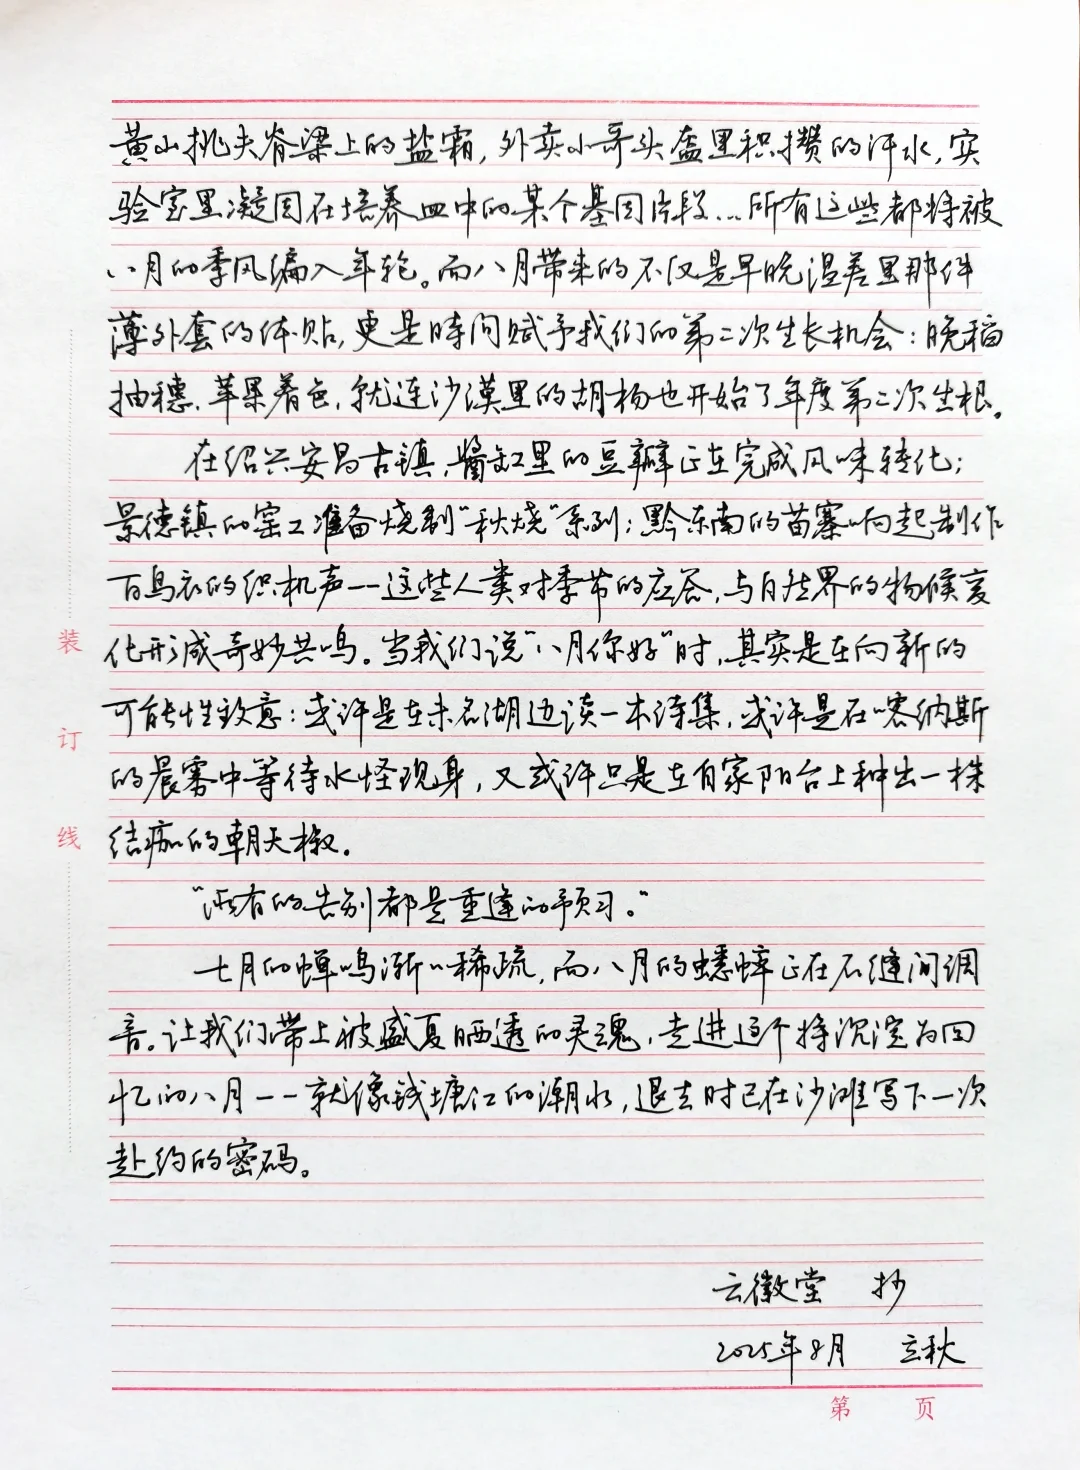 黄山挑夫脊梁上的盐霜，外卖小哥头盔里积攒的汗水，实
验室里凝固在培养皿中的某个基因片段…所有这些都将被
八月的季风编入年轮。而八月带来的不仅是早晚温差里那件
薄外套的体贴，更是時间赋予我们的第二次生长机会：晚稻
抽穗、苹果着色，就连沙漠里的胡杨也开始了年度第二次生根。
在绍兴安昌古镇，酱缸里的豆瓣正在完成风味转化；
景德镇的窑工准备烧制“秋烧”系列；黔东南的苗寨响起制作
百鸟衣的织机声——这些人类对季节的应答，与自然界的物候变
化形成奇妙共鸣。当我们说“八月你好”时，其实是在向新的
可能性致意：或许是在未名湖边读一本诗集，或许是在喀纳斯
的晨雾中等待水怪现身，又或许只是在自家阳台上种出一株
结痂的朝天椒。
“所有的告别都是重逢的预习。”
七月的蝉鸣渐次稀疏，而八月的蟋蟀正在石缝间调
音。让我们带上被盛夏晒透的灵魂，走进这个将沉淀为回
忆的八月——就像钱塘江的潮水，退去时已在沙滩写下一次
赴约的密码。
云徽堂 抄
2025年8月 立秋
装
订
线
第 页